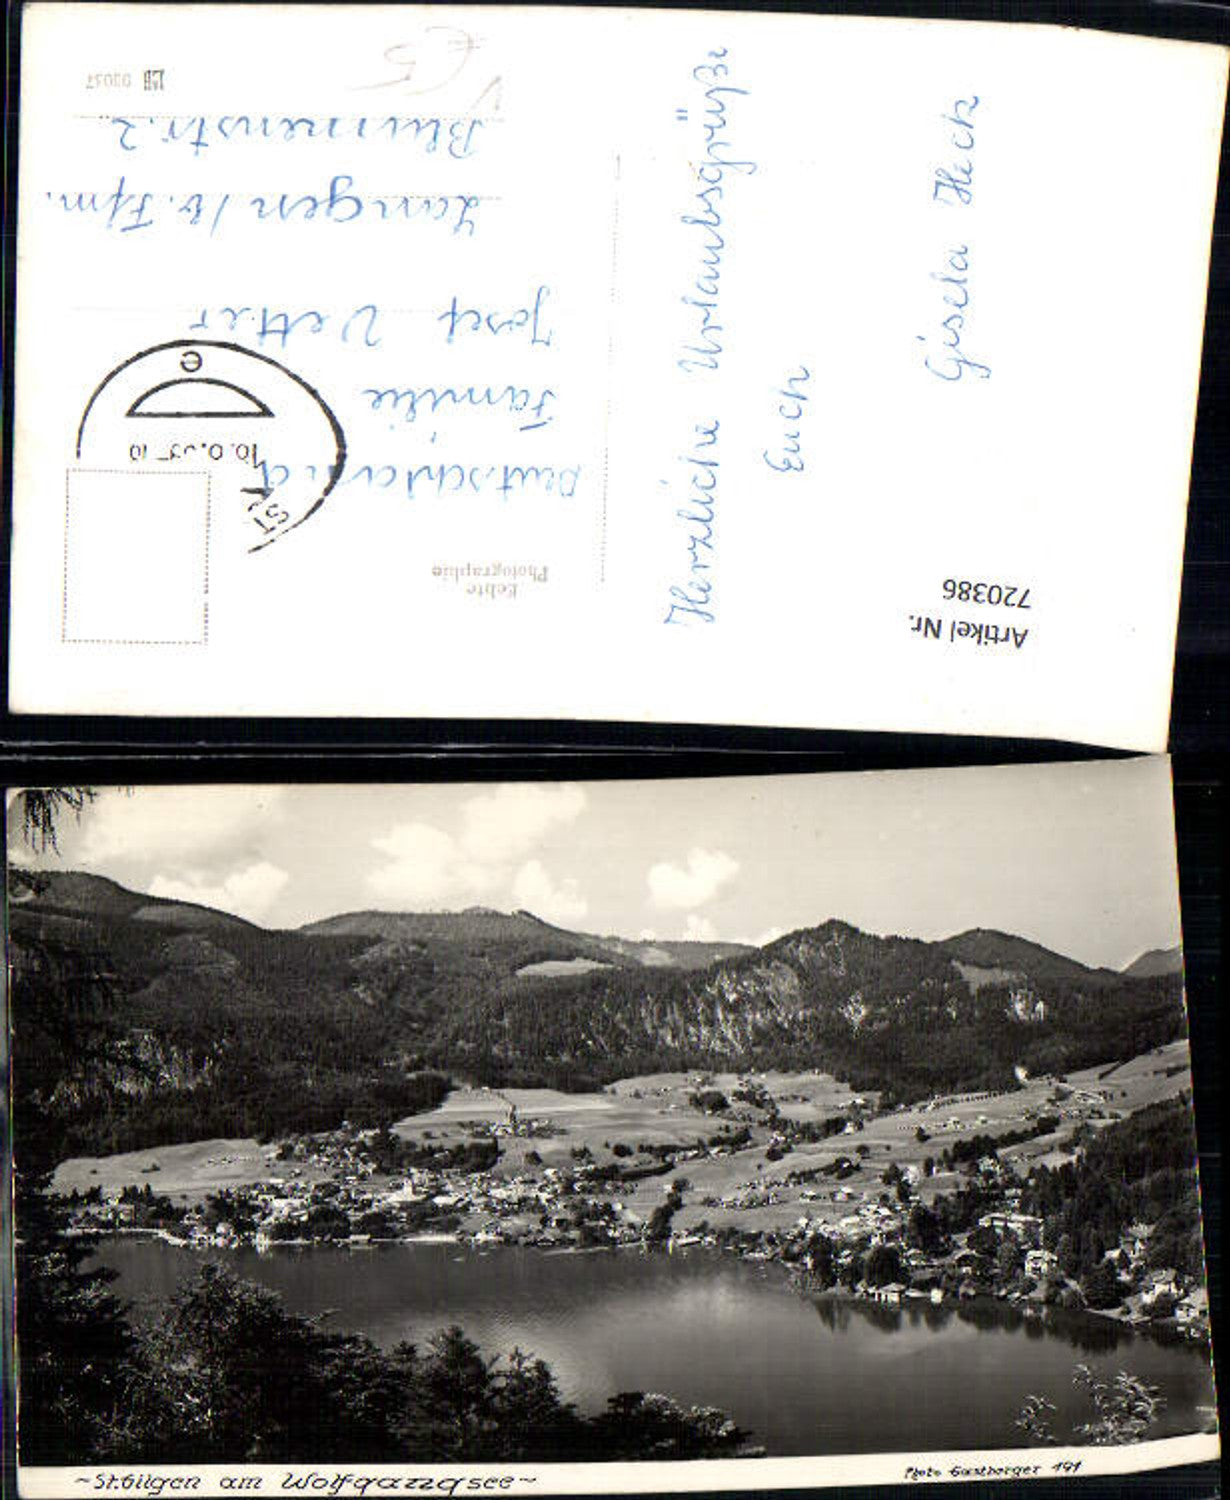 Artikel Nr.
720386
Echte
Photographie
Herzliche Urlaubsgrüße
Euch
Gisela Heck
Deutschland
Familie
Josef Vetter
Langen /b. Ffm.
Blumenstr. 2
e
~St. Gilgen am Wolfgangsee~
Photo Gastberger 191